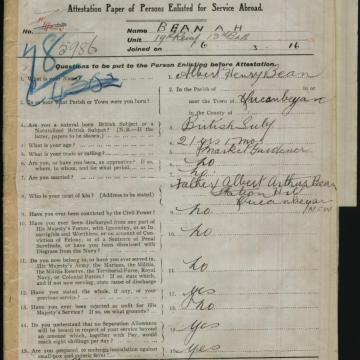 Attestation Paper of Persons Enlisted for Service Abroad.
No. 2986 Name BEAN A H
Unit 19th Reinf 13th Batt
Joined on 6 3 16
Questions to be put to the Person Enlisting before Attestation.
1. What is your Name? 1. Albert Henry Bean
2. In or near what Parish or Town were you born? 2. In the Parish of in or
near the Town of Queanbeyan
in the County of
3. Are you a natural born British Subject or a British Subj
Naturalised British Subject? (N.B.—If the
latter, papers to be shown).
4. What is your age? 21 yrs
5. What is your trade or calling? Market Gardener
6. Are you, or have you been, an apprentice? If so, No
where, to whom, and for what period.
7. Are you married? No
8. Who is your next of kin? (Address to be stated) Father Albert Arthur Bean
Station
Queanbeyan
NSW
9. Have you ever been convicted by the Civil Power? 9. No
10. Have you ever been discharged from any part of
His Majesty's Forces, with Ignominy, or as In-
corrigible and Worthless, or on account of Con-
viction of Felony, or of a Sentence of Penal
Servitude, or have you been dismissed with
Disgrace from the Navy? No
11. Do you now belong to, or have you ever served in,
His Majesty's Army, the Marines, the Militia,
the Militia Reserve, the Territorial Force, Royal
Navy, or Colonial Forces? If so, state which,
and if not now serving, state cause of discharge No
12. Have you stated the whole, if any, of your
previous service? yes
13. Have you ever been rejected as unfit for His
Majesty's Service? If so, on what grounds? No
14. Do you understand that no Separation Allowance
will be issued in respect of your service beyond
an amount which, together with Pay, would
reach eight shillings per day? yes
15. Are you prepared to undergo inoculation against
small-pox and enteric fever? yes